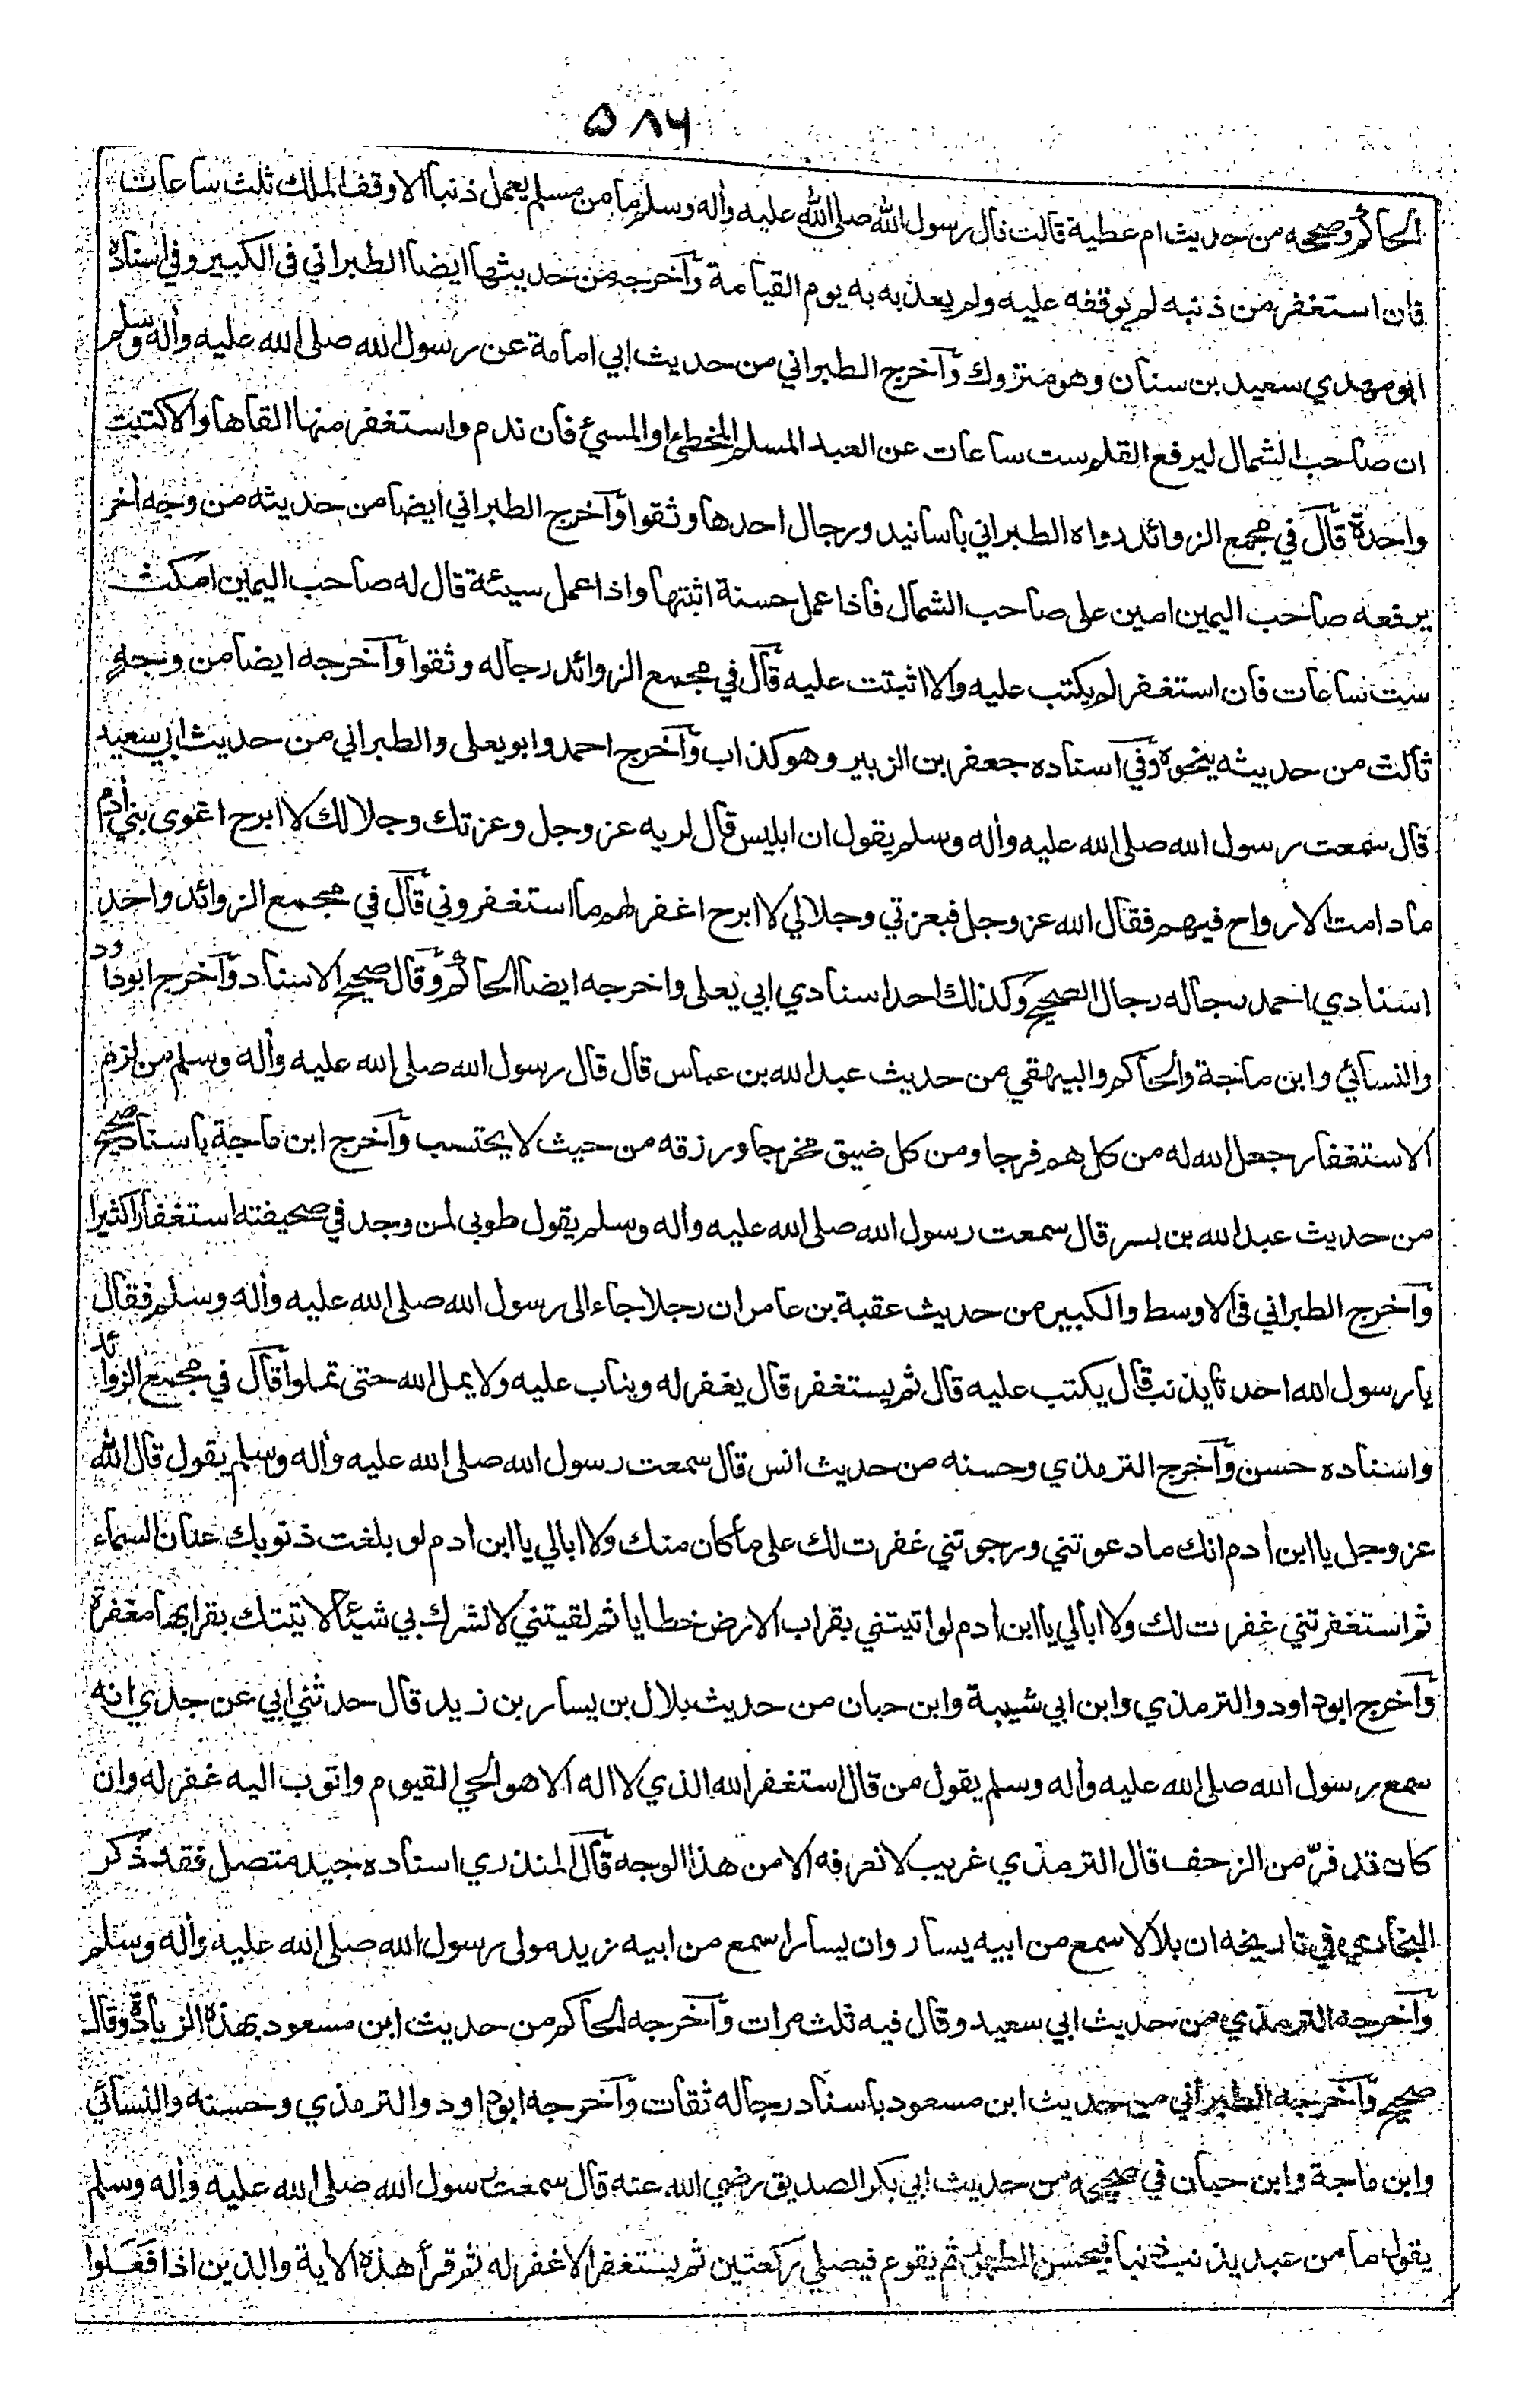 ٥٨٦
الحاكم وصححه من حديث ام عطية قالت قال رسول الله صلى الله عليه وأله وسلم ما من مسلم يعمل ذنبا الا وقف الملك ثلث ساعات
فان استغفر من ذنبه لم يوقفه عليه ولم يعذبه به يوم القيامة وآخرجه من حديثها ايضا الطبراني في الكبير وفي اسناده
ابو مهدي سعيد بن سنان وهو متروك وآخرج الطبراني من حديث ابي امامة عن رسول الله صلى الله عليه وأله وسلم
ان صاحب الشمال ليرفع القلم ست ساعات عن العبد المسلم المخطئ او المسيئ فان ندم واستغفر منها القاها والا كتبت
واحدة قآل في مجمع الزوائد رواه الطبراني باسانيد ورجال احدها وثقوا وآخرج الطبراني ايضا من حديثه من وجه أخر
يرفعه صاحب اليمين امين على صاحب الشمال فاذا عمل حسنة اثبتها واذا عمل سيئة قال له صاحب اليمين امكث
ست ساعات فان استغفر لم يكتب عليه والا اثبتت عليه قآل في مجمع الزوائد رجاله وثقوا وآخرجه ايضا من وجه
ثالث من حديثه بنحوه وفي آسناده جعفر بن الزبير وهو كذاب وآخرج احمد وابو يعلى والطبراني من حديث ابي سعيد
قال سمعت رسول الله صلى الله عليه وأله وسلم يقول ان ابليس قال لربه عز وجل وعزتك وجلالك لا ابرح اغوى بني أدم
ما دامت الارواح فيهم فقال الله عز وجل فبعزتي وجلالي لا ابرح اغفر لهم ما استغفروني قآل في مجمع الزوائد واحد
اسنادي احمد رجاله رجال الصحيح وكذلك احد اسنادي ابي يعلى واخرجه ايضا الحاكم وقآل صحيح الاسناد وآخرج ابوداود
والنسائي وابن ماجة والحاكم والبيهقي من حديث عبد الله بن عباس قال قال رسول الله صلى الله عليه وأله وسلم من لزم
الاستغفار جعل الله له من كل هم فرجا ومن كل ضيق مخرجا ورزقه من حيث لا يحتسب وآخرج ابن ماجة باسناد صحيح
من حديث عبد الله بن بسر قال سمعت رسول الله صلى الله عليه وأله وسلم يقول طوبى لمن وجد في صحيفته استغفارا كثيرا
وآخرج الطبراني في الاوسط والكبير من حديث عقبة بن عامر ان رجلا جاء الى رسول الله صلى الله عليه وأله وسلم فقال
يا رسول الله احدنا يذنب قال يكتب عليه قال ثم يستغفر قال يغفر له ويتاب عليه ولا يمل الله حتى تملوا قآل في مجمع الزوائد
واسناده حسن وآخرج الترمذي وحسنه من حديث انس قال سمعت رسول الله صلى الله عليه وأله وسلم يقول قال الله
عز وجل يا ابن أدم انك ما دعوتني ورجوتني غفرت لك على ما كان منك ولا ابالي يا ابن أدم لو بلغت ذنوبك عنان السماء
ثم استغفرتني غفرت لك ولا ابالي يا ابن أدم لو اتيتني بقراب الارض خطايا ثم لقيتني لا تشرك بي شيئا لاتيتك بقرابها مغفرة
وآخرج ابو داود والترمذي وابن ابي شيبة وابن حبان من حديث بلال بن يسار بن زيد قال حدثني ابي عن جدي انه
سمع رسول الله صلى الله عليه وأله وسلم يقول من قال استغفر الله الذي لا اله الا هو الحي القيوم واتوب اليه غفر له وان
كان قد فرّ من الزحف قال الترمذي غريب لا نعرفه الا من هذا الوجه قآل المنذري اسناده جيد متصل فقد ذكر
البخاري في تاريخه ان بلالا سمع من ابيه يسار وان يسارا سمع من ابيه زيد مولى رسول الله صلى الله عليه وأله وسلم
وآخرجه الترمذي من حديث ابي سعيد وقال فيه ثلث مرات وآخرجه الحاكم من حديث ابن مسعود بهذه الزيادة وقال
صحيح وآخرجه الطبراني من حديث ابن مسعود باسناد رجاله ثقات وآخرجه ابو داود والترمذي وحسنه والنسائي
وابن ماجة وابن حبان في صحيحه من حديث ابي بكر الصديق رضي الله عنه قال سمعت رسول الله صلى الله عليه وأله وسلم
يقول ما من عبد يذنب ذنبا فيحسن الطهور ثم يقوم فيصلي ركعتين ثم يستغفر الا غفر له ثم قرأ هذه الأية والذين اذا فَعَلوا